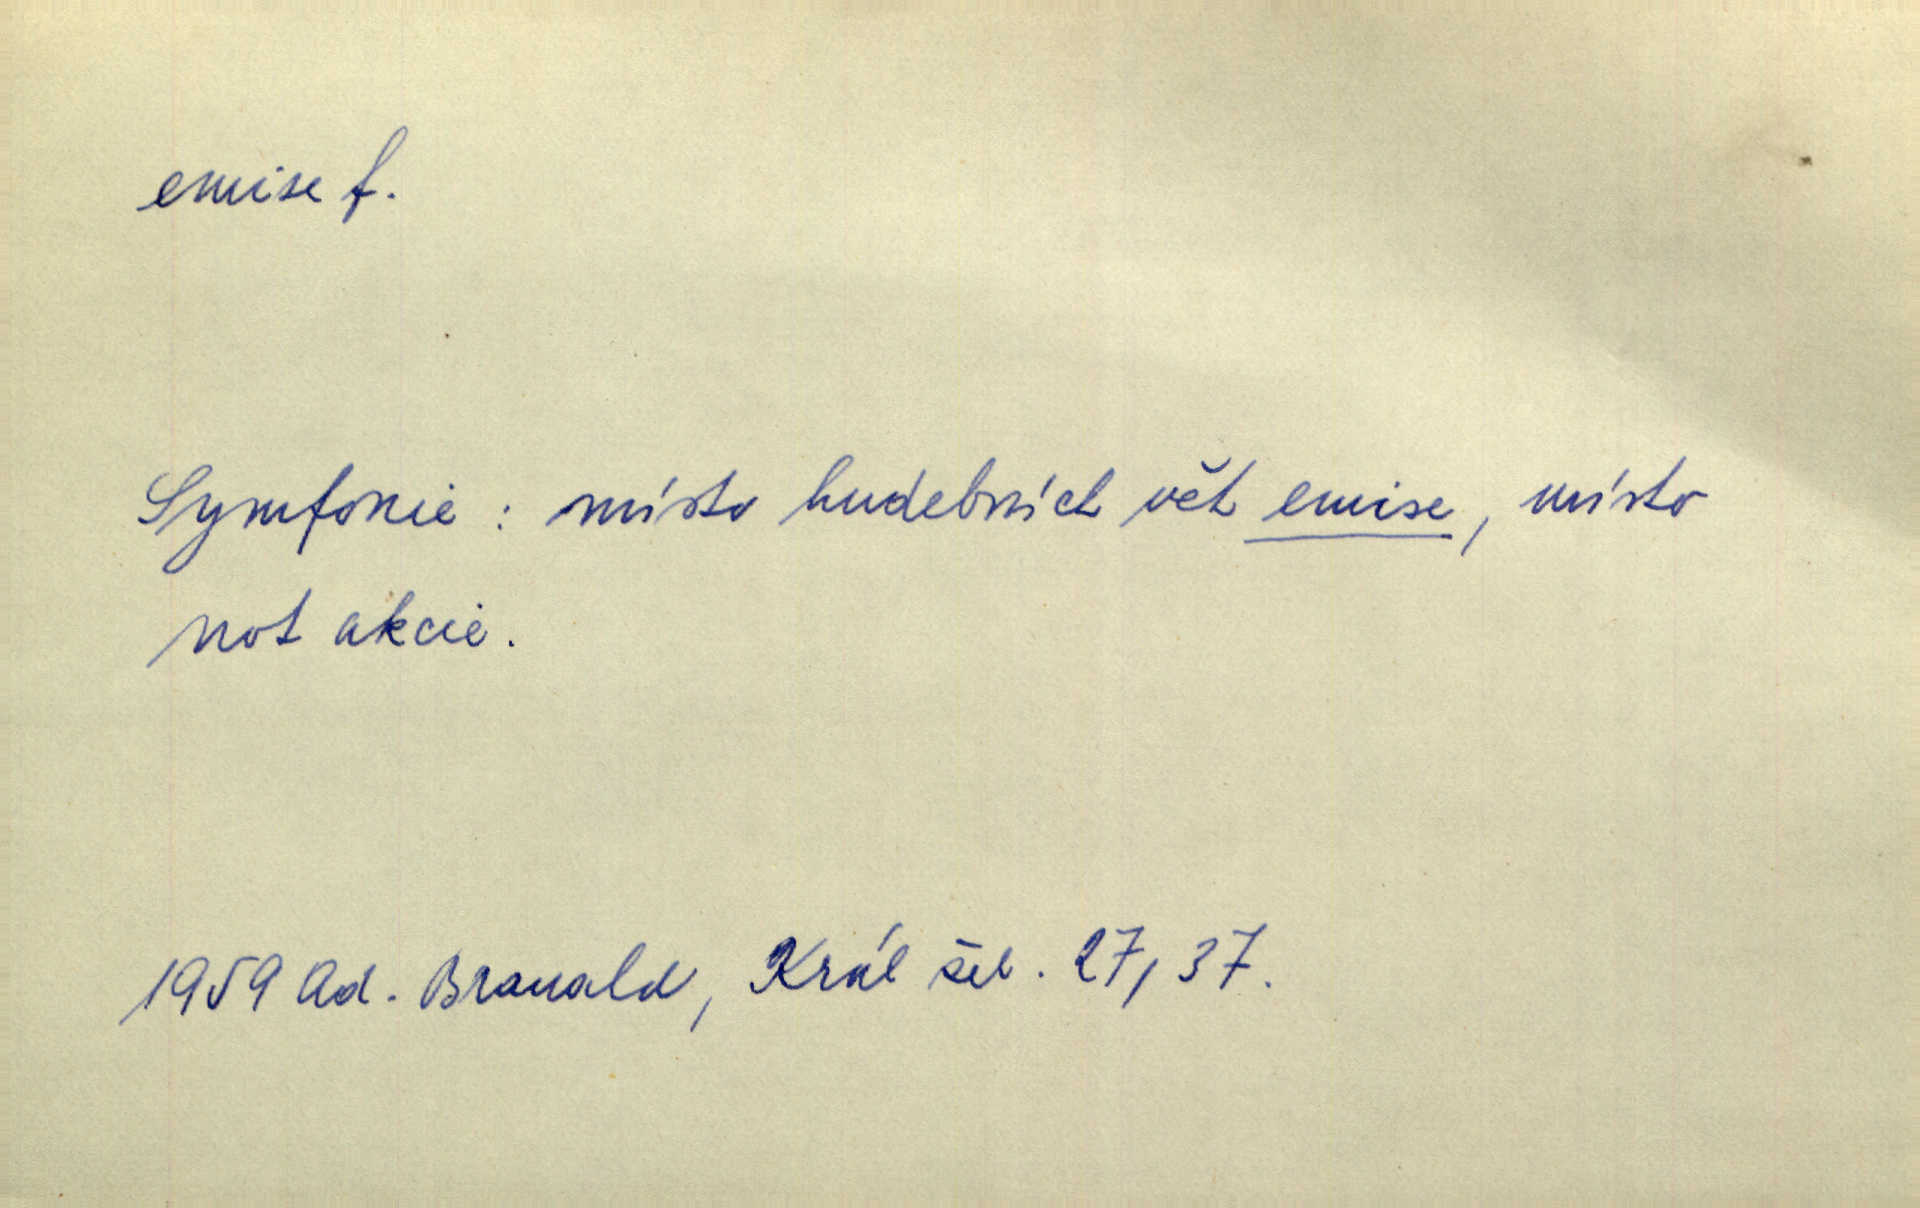 emise f.
Symfonie : místo hudebních vět emise, místo
not akcie.
1959 Ad. Branald, Král žel. 27, 37.